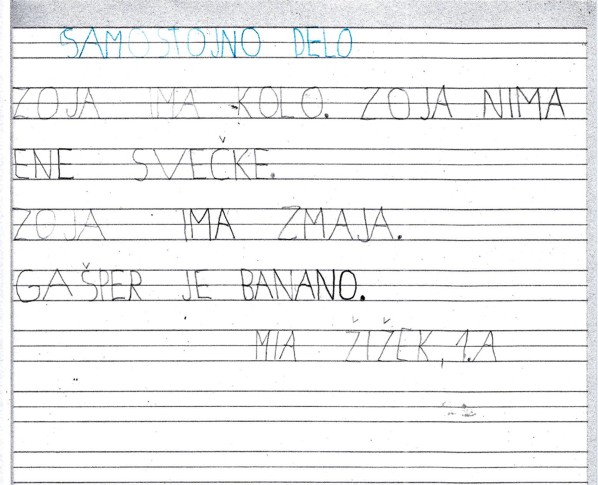 SAMOSTOJNO DELO
ZOJA IMA KOLO. ZOJA NIMA
ENE SVEČKE.
ZOJA IMA ZMAJA.
GAŠPER JE BANANO.
MIA ŽIŽEK, 1.A